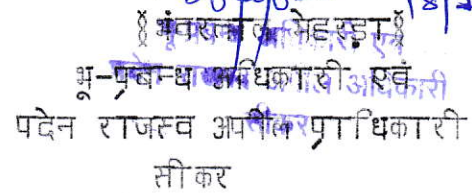 § भंवरलाल मेहरड़ा §
भू-प्रबन्ध अधिकारी एवं
पदेन राजस्व अपील प्राधिकारी
सीकर